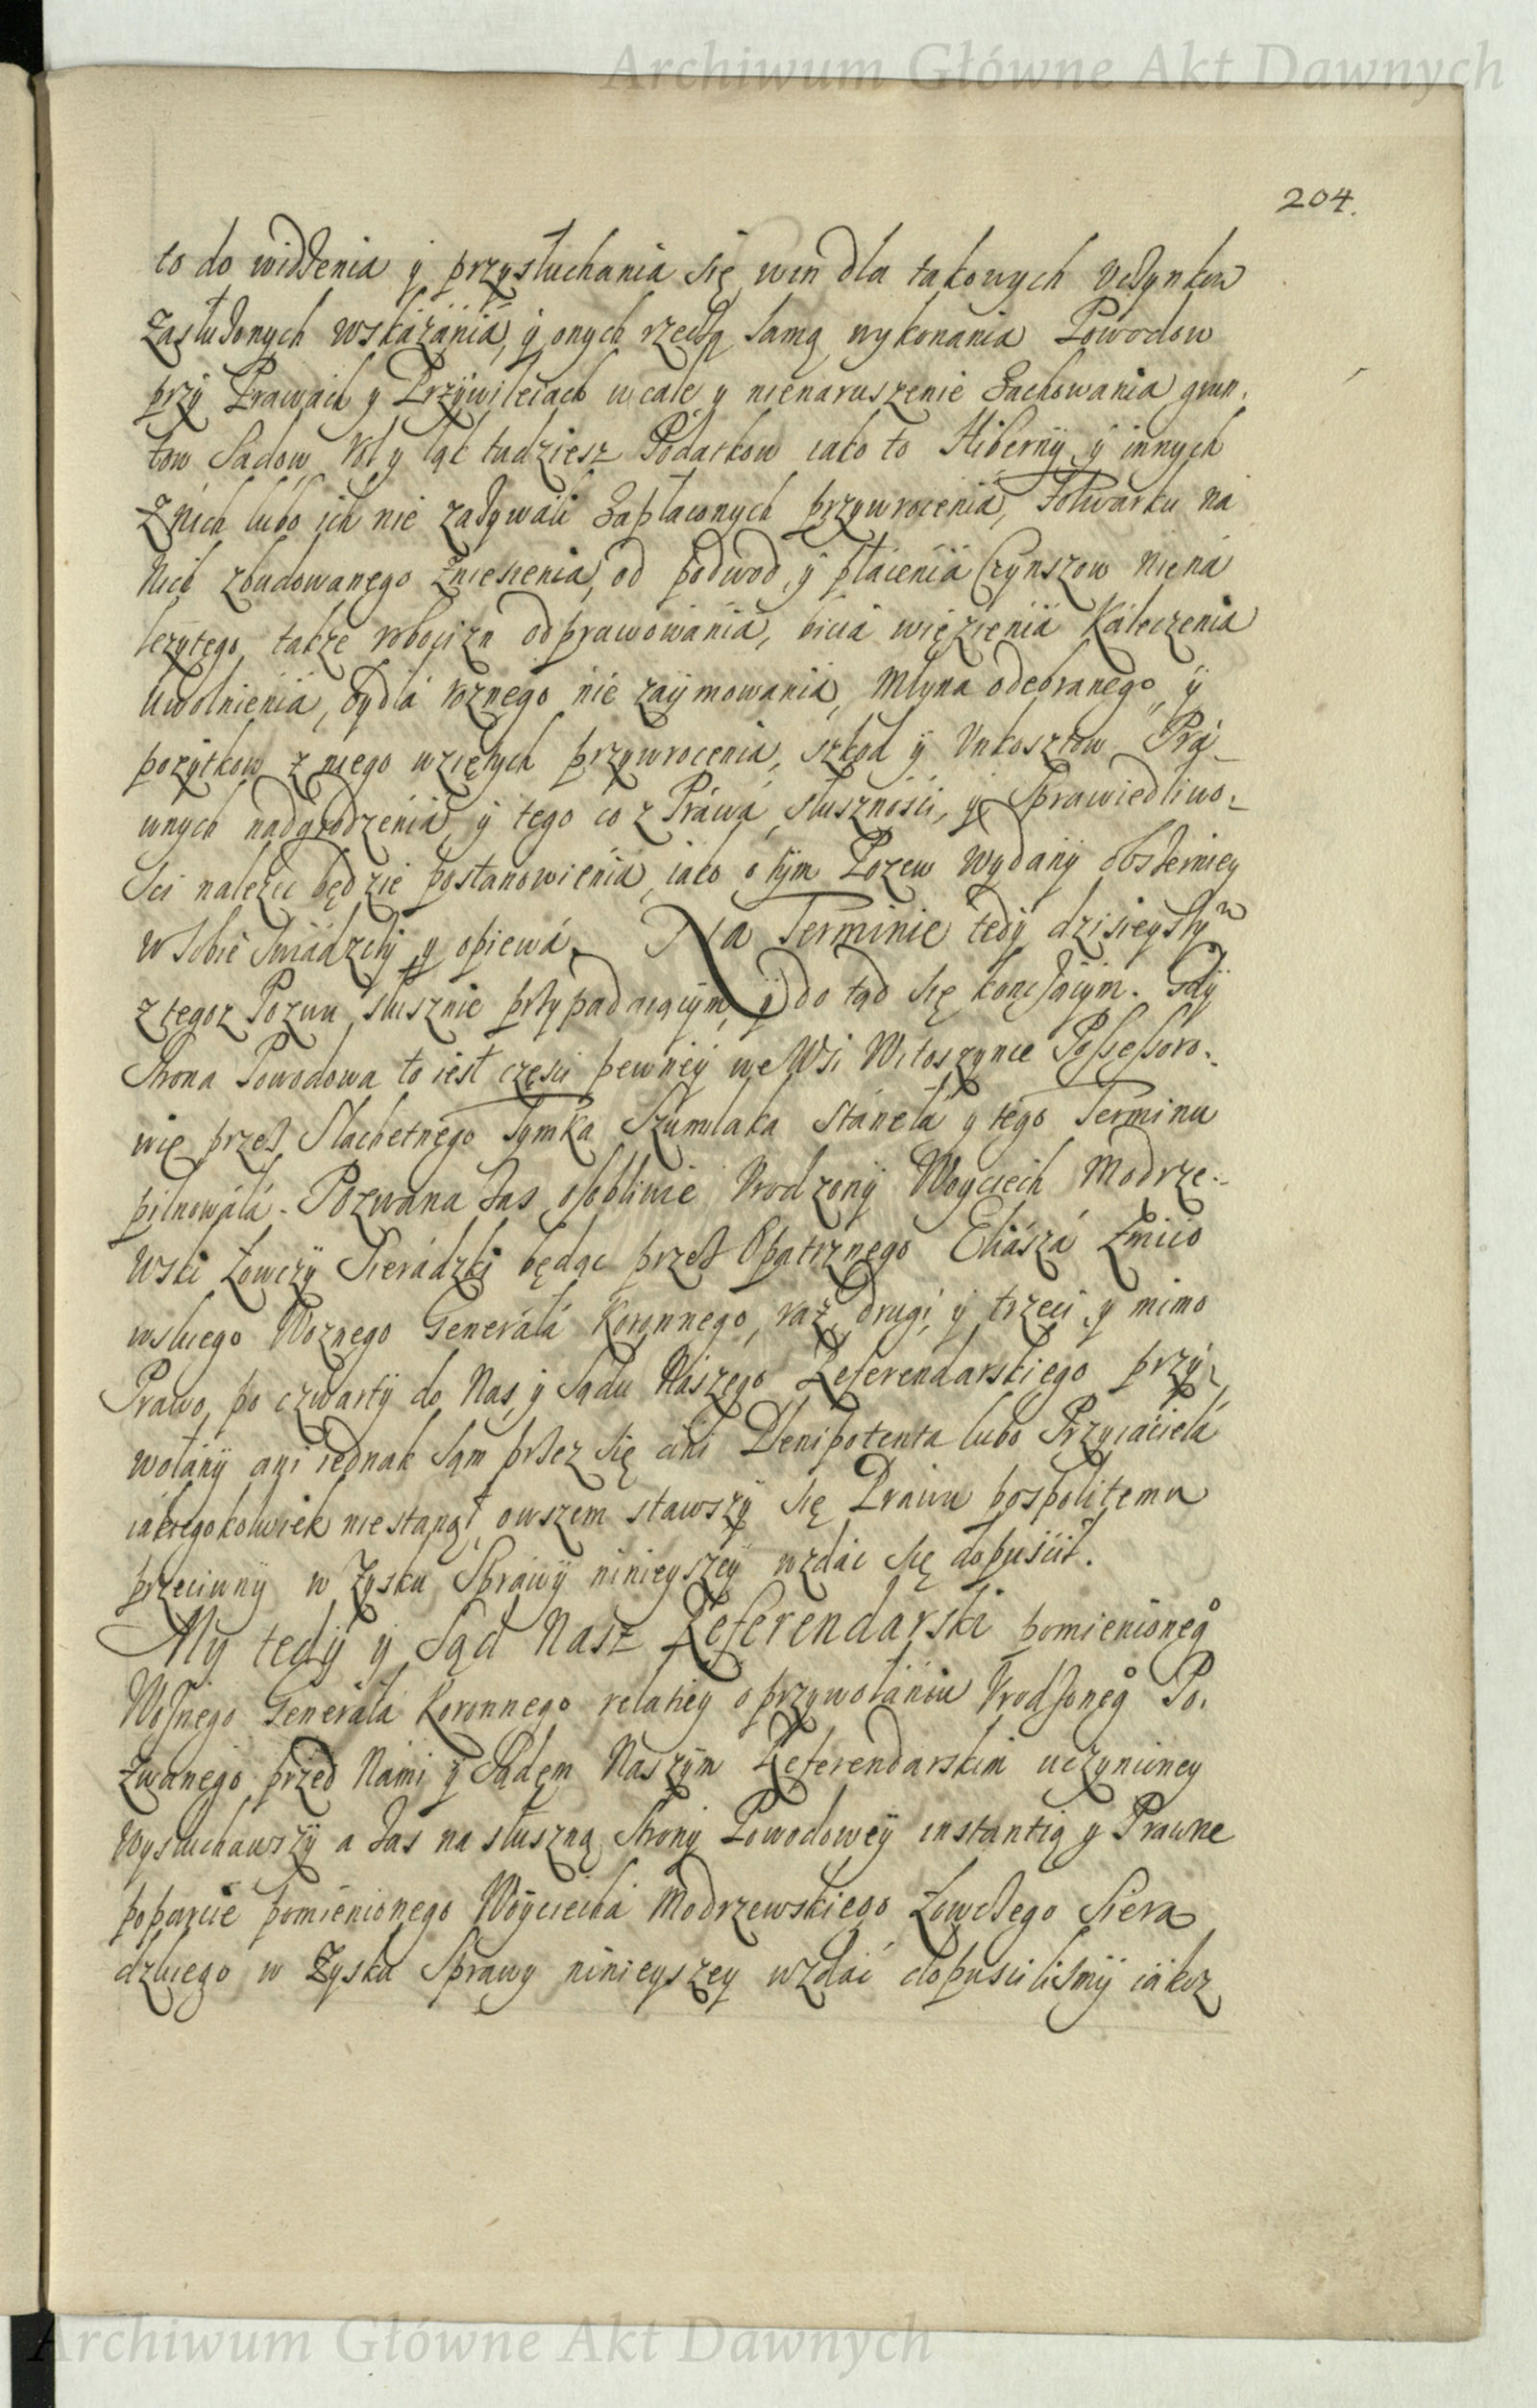 Archiwum Główne Akt Dawnych
204.
to do widzenia y przysłuchania się win dla takowych vczynkow
zasłużonych wskazania, y onych rzeczą samą wykonania Powodow
przy Prawach y Przywileiach wcale y nienaruszenie zachowania grun-
tow Sadow Rol y łąk tudziesz Podatkow iako to Hiberny y innych
z nich lubo ich nie zażywali zapłaconych przywrocenia, Folwarku na
nich zbudowanego zniesienia, od podwod, y płacenia Czynszow niena
leżytego, także robocizn odprawowania, bicia więzienia kaleczenia
uwolnienia, bydła roznego nie zaymowania, Młyna odebranego, y
pożytkow z niego wziętych przywrocenia, szkod y Vnkosztow Pra-
wnych nadgrodzenia, y tego co z Prawa, słusznosci, y Sprawiedliwo-
sci należeć będzie postanowienia, iako o tym Pozew wydany obszerniey
w sobie swiadczy y opiewa. Na Terminie tedy dzisieyszym
z tegoz Pozwu słusznie przypadaiącym, y do tąd się kączącym. Gdy
Strona Powodowa to iest częsci pewney we Wsi Witoszynce Possessoro-
wie przez Slachetnego Tymka Szumlaka stanęła y tego Terminu
pilnowała. Pozwana zas osobliwie Vrodzony Woyciech Modrze-
wski Łowczy Sieradzki będąc przez Opatrznego Eliasza Zmiio
wskiego Woznego Generała Koronnego, raz, drugi, y trzeci, y mimo
Prawo, po czwarty do Nas, y Sądu Naszego Referendarskiego przy-
wołany ani iednak sąm przez się ani Plenipotenta lubo Przyiaciela
iakiegokolwiek niestanął, owszem stawszy się Prawu pospolitemu
przeciwny w Zysku Sprawy ninieyszey wzdac się dopuscił.
My tedy y Sąd Nasz Referendarski pomienionego
Woznego Generała Koronnego relatiey o przywołaniu Vrodzonego Po-
zwanego przed Nami y Sądem Naszym Referendarskim uczynioney
wysłuchawszy a zas na słuszną Strony Powodowey instantią y Prawne
poparcie pomienionego Woyciecha Modrzewskiego Łowczego Siera
dzkiego w Zysku Sprawy ninieyszey wzdać dopuscilismy iakoz
Archiwum Główne Akt Dawnych